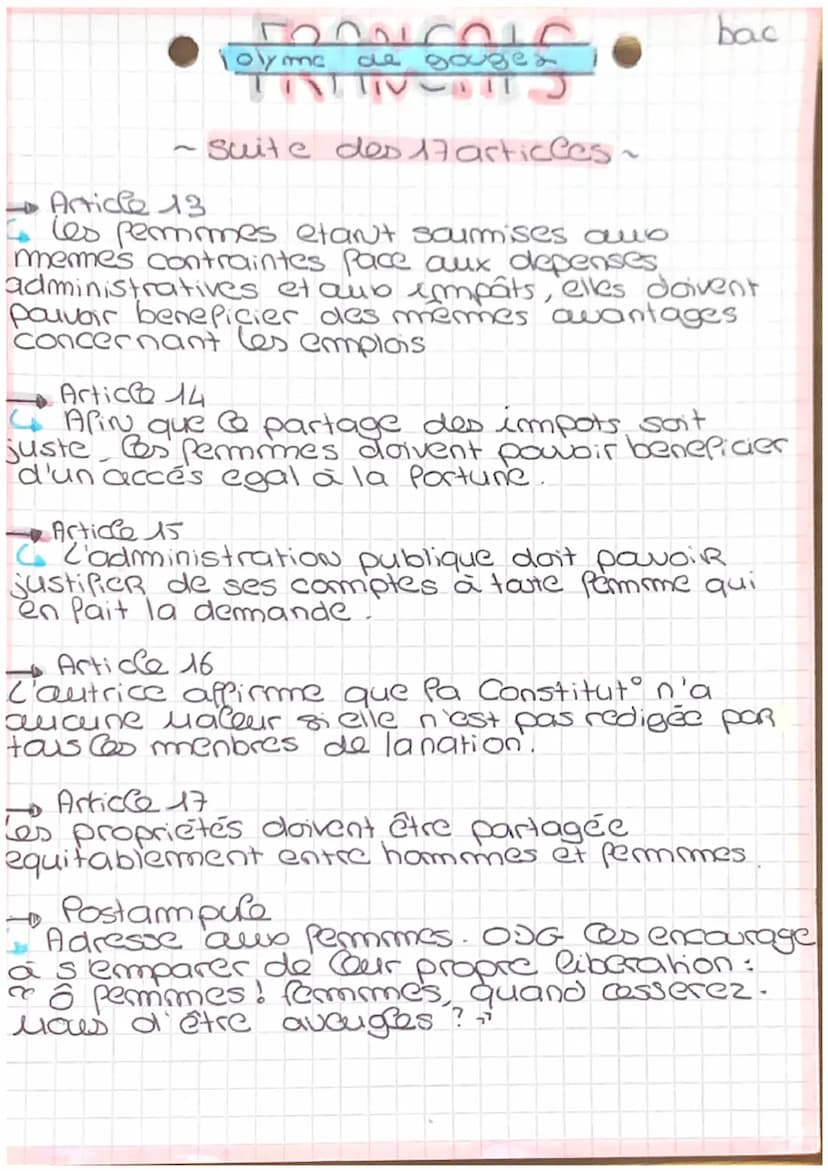 bac
FRANÇAIS
olymc de gouges
~ suite des 17 articles ~
→ Article 13
↳ Les femmes etant soumises aux
memes contraintes face aux depenses
administratives et aux impâts, elles doivent
pouvoir beneficier des mêmes avantages
concernant les emplois
→ Article 14
↳ Afin que le partage des impots soit
juste, les femmes doivent pouvoir beneficier
d'un accés egal à la fortune.
→ Article 15
↳ L'administration publique doit pouvoir
justifier de ses comptes à toute femme qui
en fait la demande.
→ Article 16
L'autrice affirme que la Constitut° n'a
aucune valeur si elle n'est pas redigée par
tous les menbres de la nation.
→ Article 17
Les propriétés doivent être partagée
equitablement entre hommes et femmes.
→ Postampule
↳ Adresse aux femmes. ODG les encourage
à s'emparer de leur propre liberation:
« ô femmes! femmes, quand cesserez-
vous d'être aveugles ? »